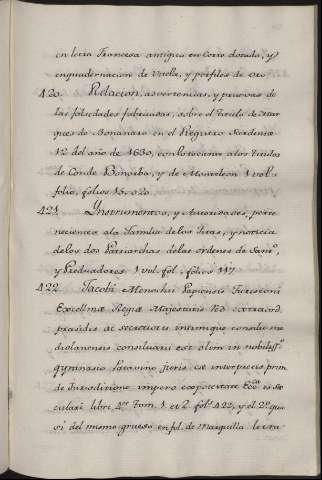 en letra Francesa antigua en Corio dorada, y
enquadernacion de Vitela, y perfiles de Oro
420. Relacion, advertencias, y pruevas de
las falsidades fabricadas, sobre el titulo de Mar
ques de Bonanaro en el Registro Sardeniæ
12 del año de 1630, con lo tocante a los titulos
de Conde Bonorba, y de Monteleon 1 vol.
folio, folios 15. 020
421. Ynstrumentos, y Autoridades, perte
necientes ala Familia de los , y noticia
de los dos Patriarchas de las ordenes de Sanº,
y Predicadores 1 vol. fol. folios 117
422. Jacobi Menochii Papiensis Jurisconi
Excellmæ Regæ Majestatis
præsidis ac senatoris intimique consilii me
diolanensis consiliarii est olim in nobilissº
gymnasio Patavino Iuris interpretis prim
de Jurisditione imperio ac potestate Eccª ac Se
culari libri, 4or Tom. 1 et 2 folº 422, y el 2º qua
si del mismo grueso en fol. de marquilla letra